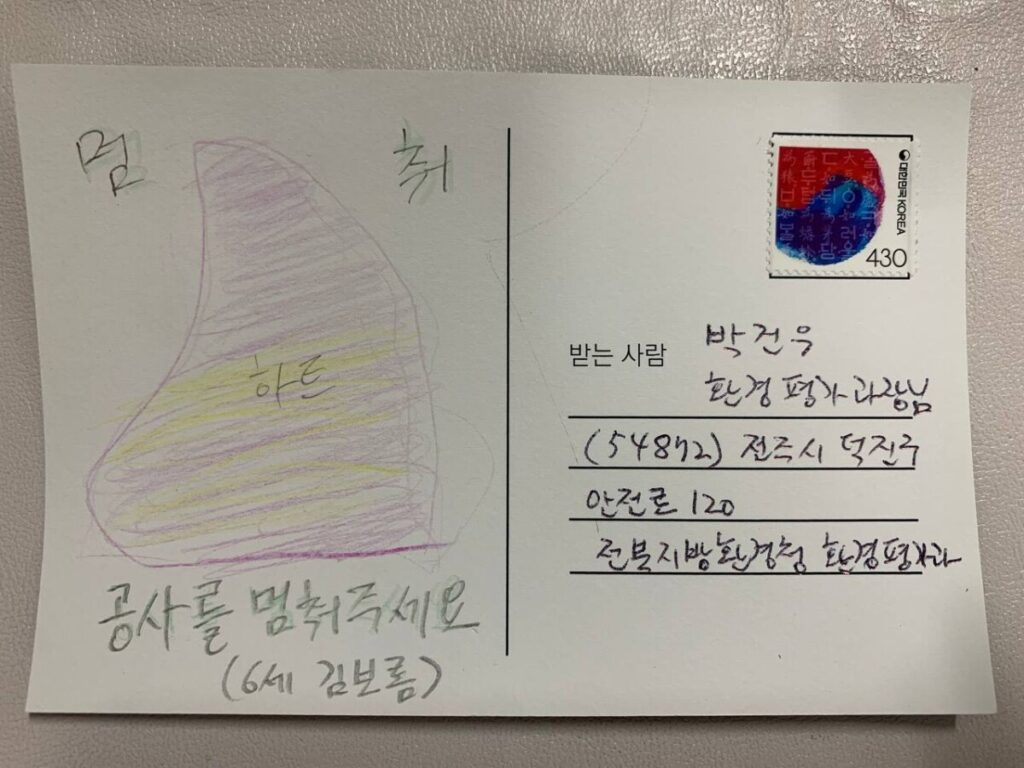 멈 춰
하트
공사를 멈춰주세요
(6세 김보름)
대한민국 KOREA
430
받는 사람 박건우
환경평가과장님
(54872) 전주시 덕진구
안전로 120
전북지방환경청 환경평가과